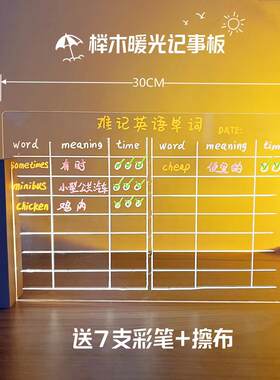 榉木暖光记事板
30CM
难记英语单词
DATE:
word meaning time word meaning tim
sometimes 有时 cheap 便宜的
minibus 小型公共汽车
chicken 鸡肉
送7支彩笔+擦布